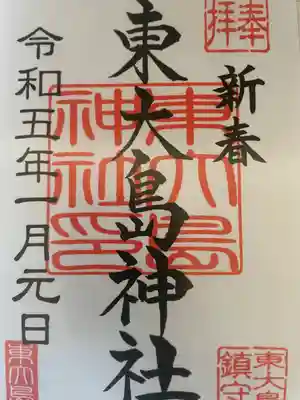 奉拝
新春
東大島神社
令和五年一月元日
東大島神社印
東大島
鎮守
東大島